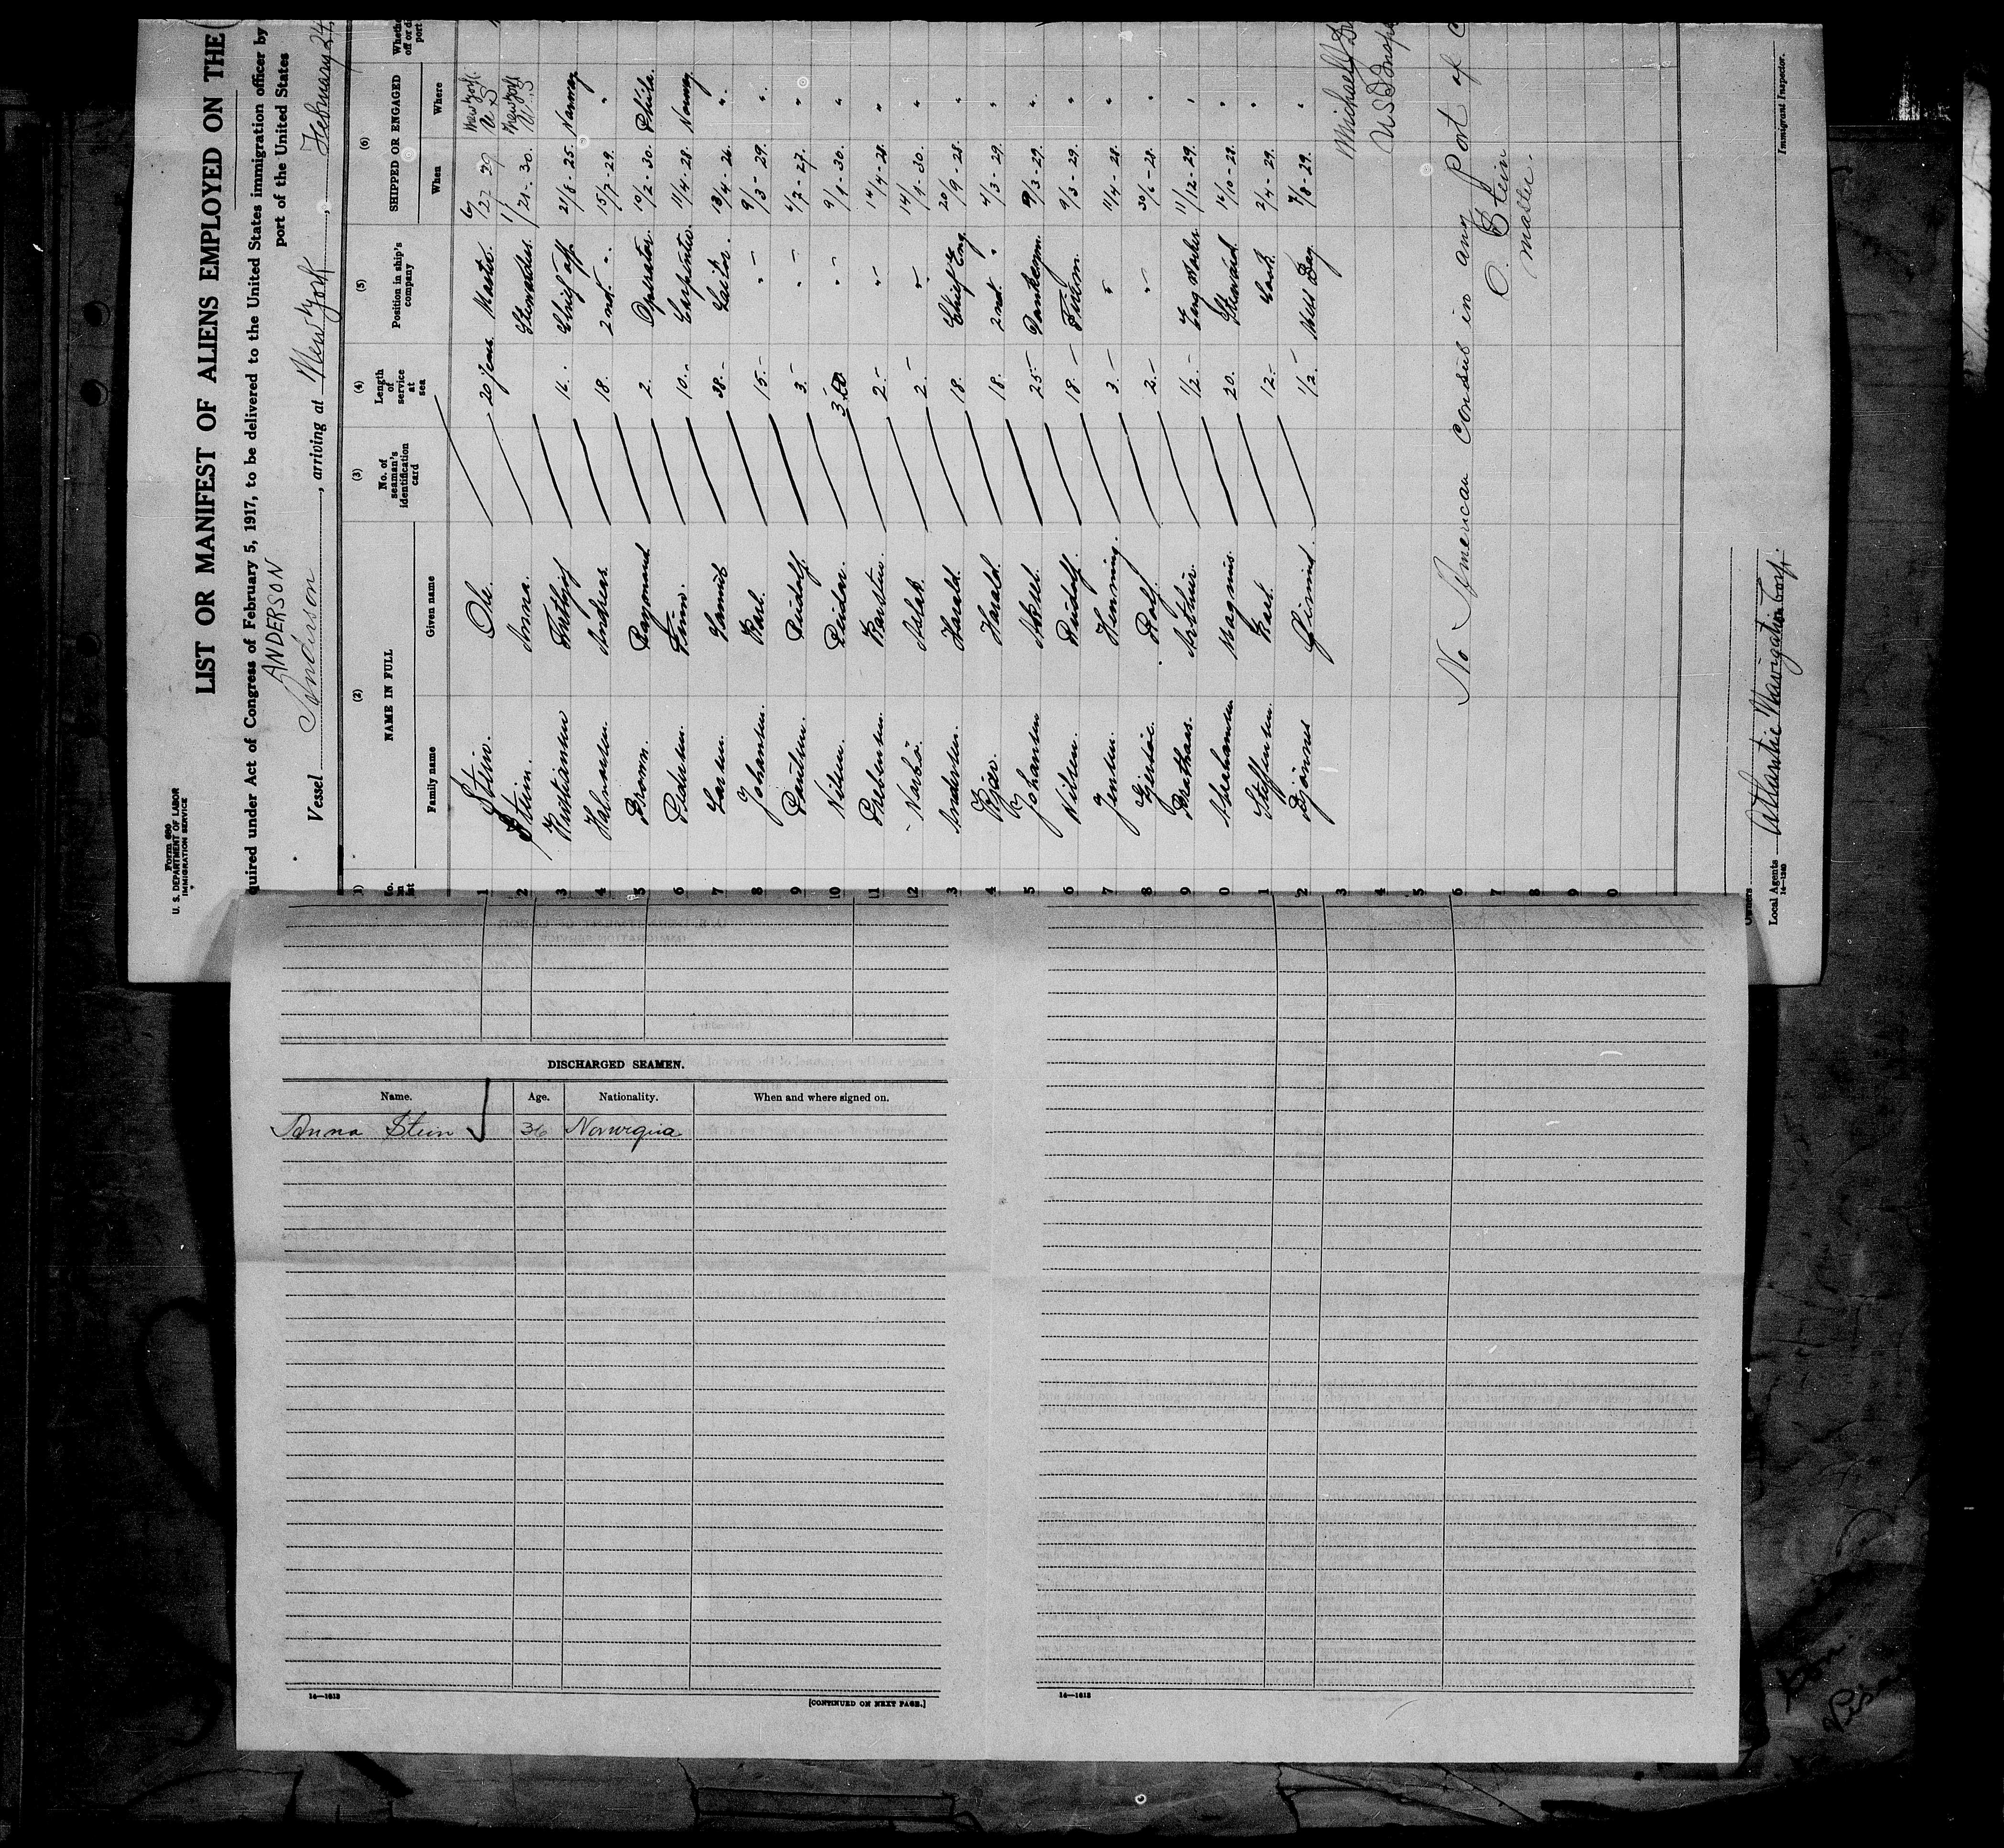 Form 680
U. S. DEPARTMENT OF LABOR
IMMIGRATION SERVICE
LIST OR MANIFEST OF ALIENS EMPLOYED ON THE
quired under Act of Congress of February 5, 1917, to be delivered to the United States immigration officer by
port of the United States
ANDERSON
Vessel Anderson, arriving at New York, February 24,
(2) (3) (4) (5) (6)
NAME IN FULL No. of seaman's identification card Length of service at sea Position in ship's company SHIPPED OR ENGAGED
Family name Given name When Where
1 Stein. Ole. 20 years Master. 6/22 29 New York U.S
2 Stein. Anna. Stewardess. 1/21-30. New York U.S
3 Kristiansen 16. Chief off. 21/8-25. Norway
4 Halvorsen. Andreas. 18. 2nd. " 15/7-29. "
5 Brown. Raymond. 2. Operator. 10/2-30. Phila.
6 Pedersen. Finn. 10.- Carpenter. 11/4-28. Norway.
7 Larsen. 38.- Sailor. 13/4-26. "
8 Johansen. Karl. 15.- " 9/3-29. "
9 Paulsen. Rudolf. 3.- " 4/7-27. "
10 Nilsen. Reidar. " 9/1-30. "
11 Karsten. 2.- " 14/4-28. "
12 Aslak. 2.- " 14/1-30. "
3 Andersen. Harald. 18. Chief Eng. 20/9-28. "
4 Harald. 18. 2nd. " 4/3-29. "
5 Johansen Aksel. 25- Donkeym. 9/3-29. "
6 Nilsen. Rudolf. 18.- Firem. 9/3-29. "
7 Jensen. Henning. 3.- " 11/4-28. "
8 Rolf. 2.- " 30/6-28. "
9 Arthur. 1/2.- 11/12-29. "
0 Abrahamsen Magnus. 20. Steward. 16/10-28. "
1 Steffensen. Karl. 12- Cook. 2/4-29. "
2 1/2.- Mess Boy. 7/8-29. "
3
4
5
6
7
8
9
0
No American Consul in any Port of
O. Stein
Master.
Owners
Local Agents Atlantic Navigation Corp.
14-1240
Immigrant Inspector.
DISCHARGED SEAMEN.
Name. Age. Nationality. When and where signed on.
Anna Stein 36 Norwegia
14—1613 [CONTINUED ON NEXT PAGE.]
14—1613